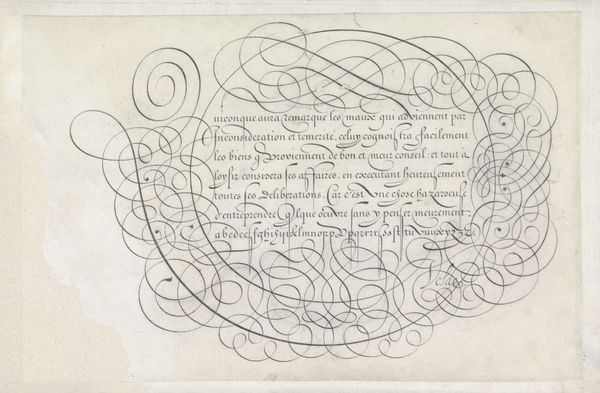 uiconque aura remarque les maux qui adviennent par
inconsideration et temerite, celuy cognoistra facilement
les biens q proviennent de bon et meur conseil: et tout à
loysir considera ses affaires, en executant heureusement
toutes ses deliberations. Car c'est une chose hazardeuse
d'entreprendre qlque oeuvre sans y penser meurement: